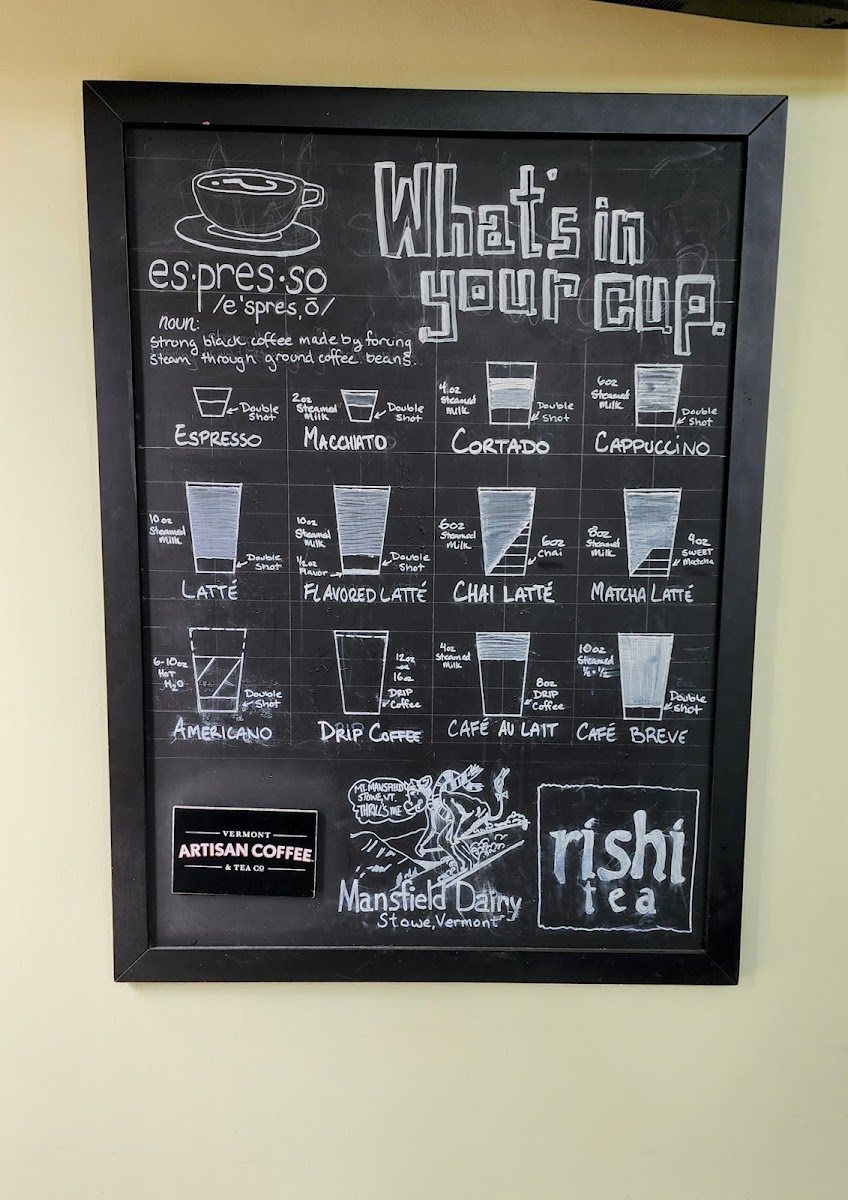 What's in
your cup.
es·pres·so
/e'spres,ō/
noun:
Strong black coffee made by forcing
Steam through ground coffee beans.
Double
Shot
ESPRESSO
2oz
Steamed
Milk
Double
Shot
MACCHIATO
4oz
Steamed
Milk
Double
Shot
CORTADO
6oz
Steamed
Milk
Double
Shot
CAPPUCCINO
10oz
Steamed
Milk
Double
Shot
LATTÉ
10oz
Steamed
Milk
1/2oz
Flavor
Double
Shot
FLAVORED LATTÉ
6oz
Steamed
Milk
6oz
Chai
CHAI LATTÉ
8oz
Steamed
Milk
4oz
SWEET
Matcha
MATCHA LATTÉ
6-10oz
HOT
H2O
Double
Shot
AMERICANO
12oz
or
16oz
DRIP
Coffee
DRIP COFFEE
4oz
Steamed
Milk
8oz
DRIP
Coffee
CAFÉ AU LAIT
10oz
Steamed
1/2 + 1/2
Double
Shot
CAFÉ BREVE
VERMONT
ARTISAN COFFEE
& TEA CO
MT. MANSFIELD
STOWE, VT.
THRILLS ME
Mansfield Dairy
Stowe, Vermont
rishi
tea